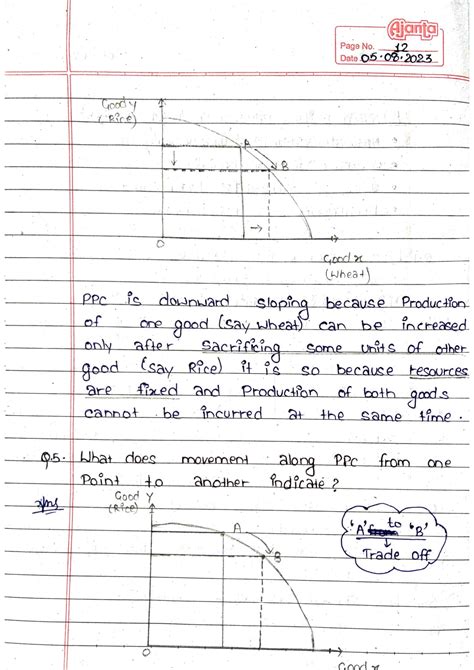 Ajanta
Page No. 12
Date 05.08.2023
Good y
(Rice)
A
B
O
Good x
(Wheat)
PPC is downward sloping because Production
of one good (say wheat) can be increased
only after Sacrificing some units of other
good (say Rice) it is so because resources
are fixed and Production of both goods
cannot be incurred at the same time.
Q.5. What does movement along PPC from one
Point to another indicate?
Ans
Good Y
(Rice)
A
B
'A' to 'B'
Trade off
O
Good x